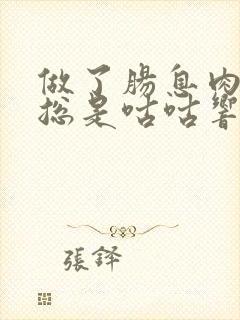 做了腸息肉
總是咕咕響
張鐸